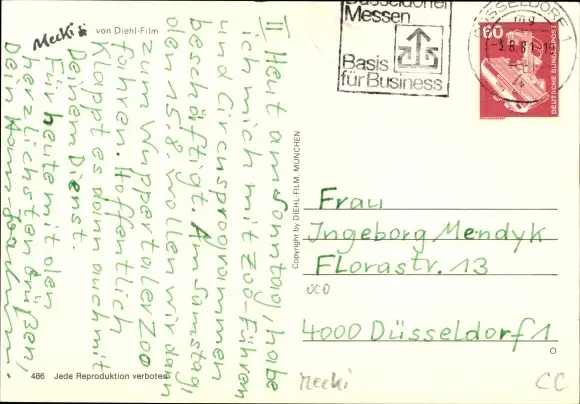 Mecki
von Diehl-Film
II Heut am Sonntag, habe
ich mich mit Zoo-Führern
und Circusprogrammen
beschäftigt. Am Samstag,
den 15.8. wollen wir dann
zum Wuppertaler Zoo
fahren. Hoffentlich
klappt es dann auch mit
Deinem Dienst.
Für heute mit den
herzlichsten Grüßen,
Dein Hans-Joachim.
486 Jede Reproduktion verboten
Copyright by DIEHL-FILM, MÜNCHEN
Düsseldorfer
Messen
Basis
für Business
DÜSSELDORF 1
-3.8.81
60
DEUTSCHE BUNDESPOST
Frau
Ingeborg Mendyk
Florastr. 13
4000 Düsseldorf 1
Mecki
CC